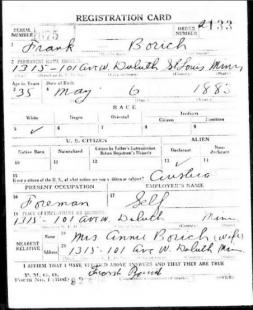 REGISTRATION CARD
SERIAL NUMBER 675 ORDER NUMBER 2133
1 Frank Borich
2 PERMANENT HOME ADDRESS:
1315-101 Av W. Duluth St Louis Minn
Age in Years Date of Birth
35 May 6 1883
RACE
White Negro Oriental Indian
Citizen Noncitizen
5 ✓ 6 7 8 9
U. S. CITIZEN ALIEN
Native Born Naturalized Citizen by Father's Naturalization Before Registrant's Majority Declarant Non-declarant
10 11 12 13 ✓ 14
15 If not a citizen of the U. S., of what nation are you a citizen or subject? Austria
PRESENT OCCUPATION EMPLOYER'S NAME
16 Foreman 17 Self
18 PLACE OF EMPLOYMENT OR BUSINESS:
1315-101 av W. Duluth Minn
NEAREST RELATIVE Name 19 Mrs Annie Borich (wife)
Address 20 1315-101 Av W Duluth Minn
I AFFIRM THAT I HAVE VERIFIED ABOVE ANSWERS AND THAT THEY ARE TRUE
P. M. G. O.
Form No. 1 (Red) Frank Borich